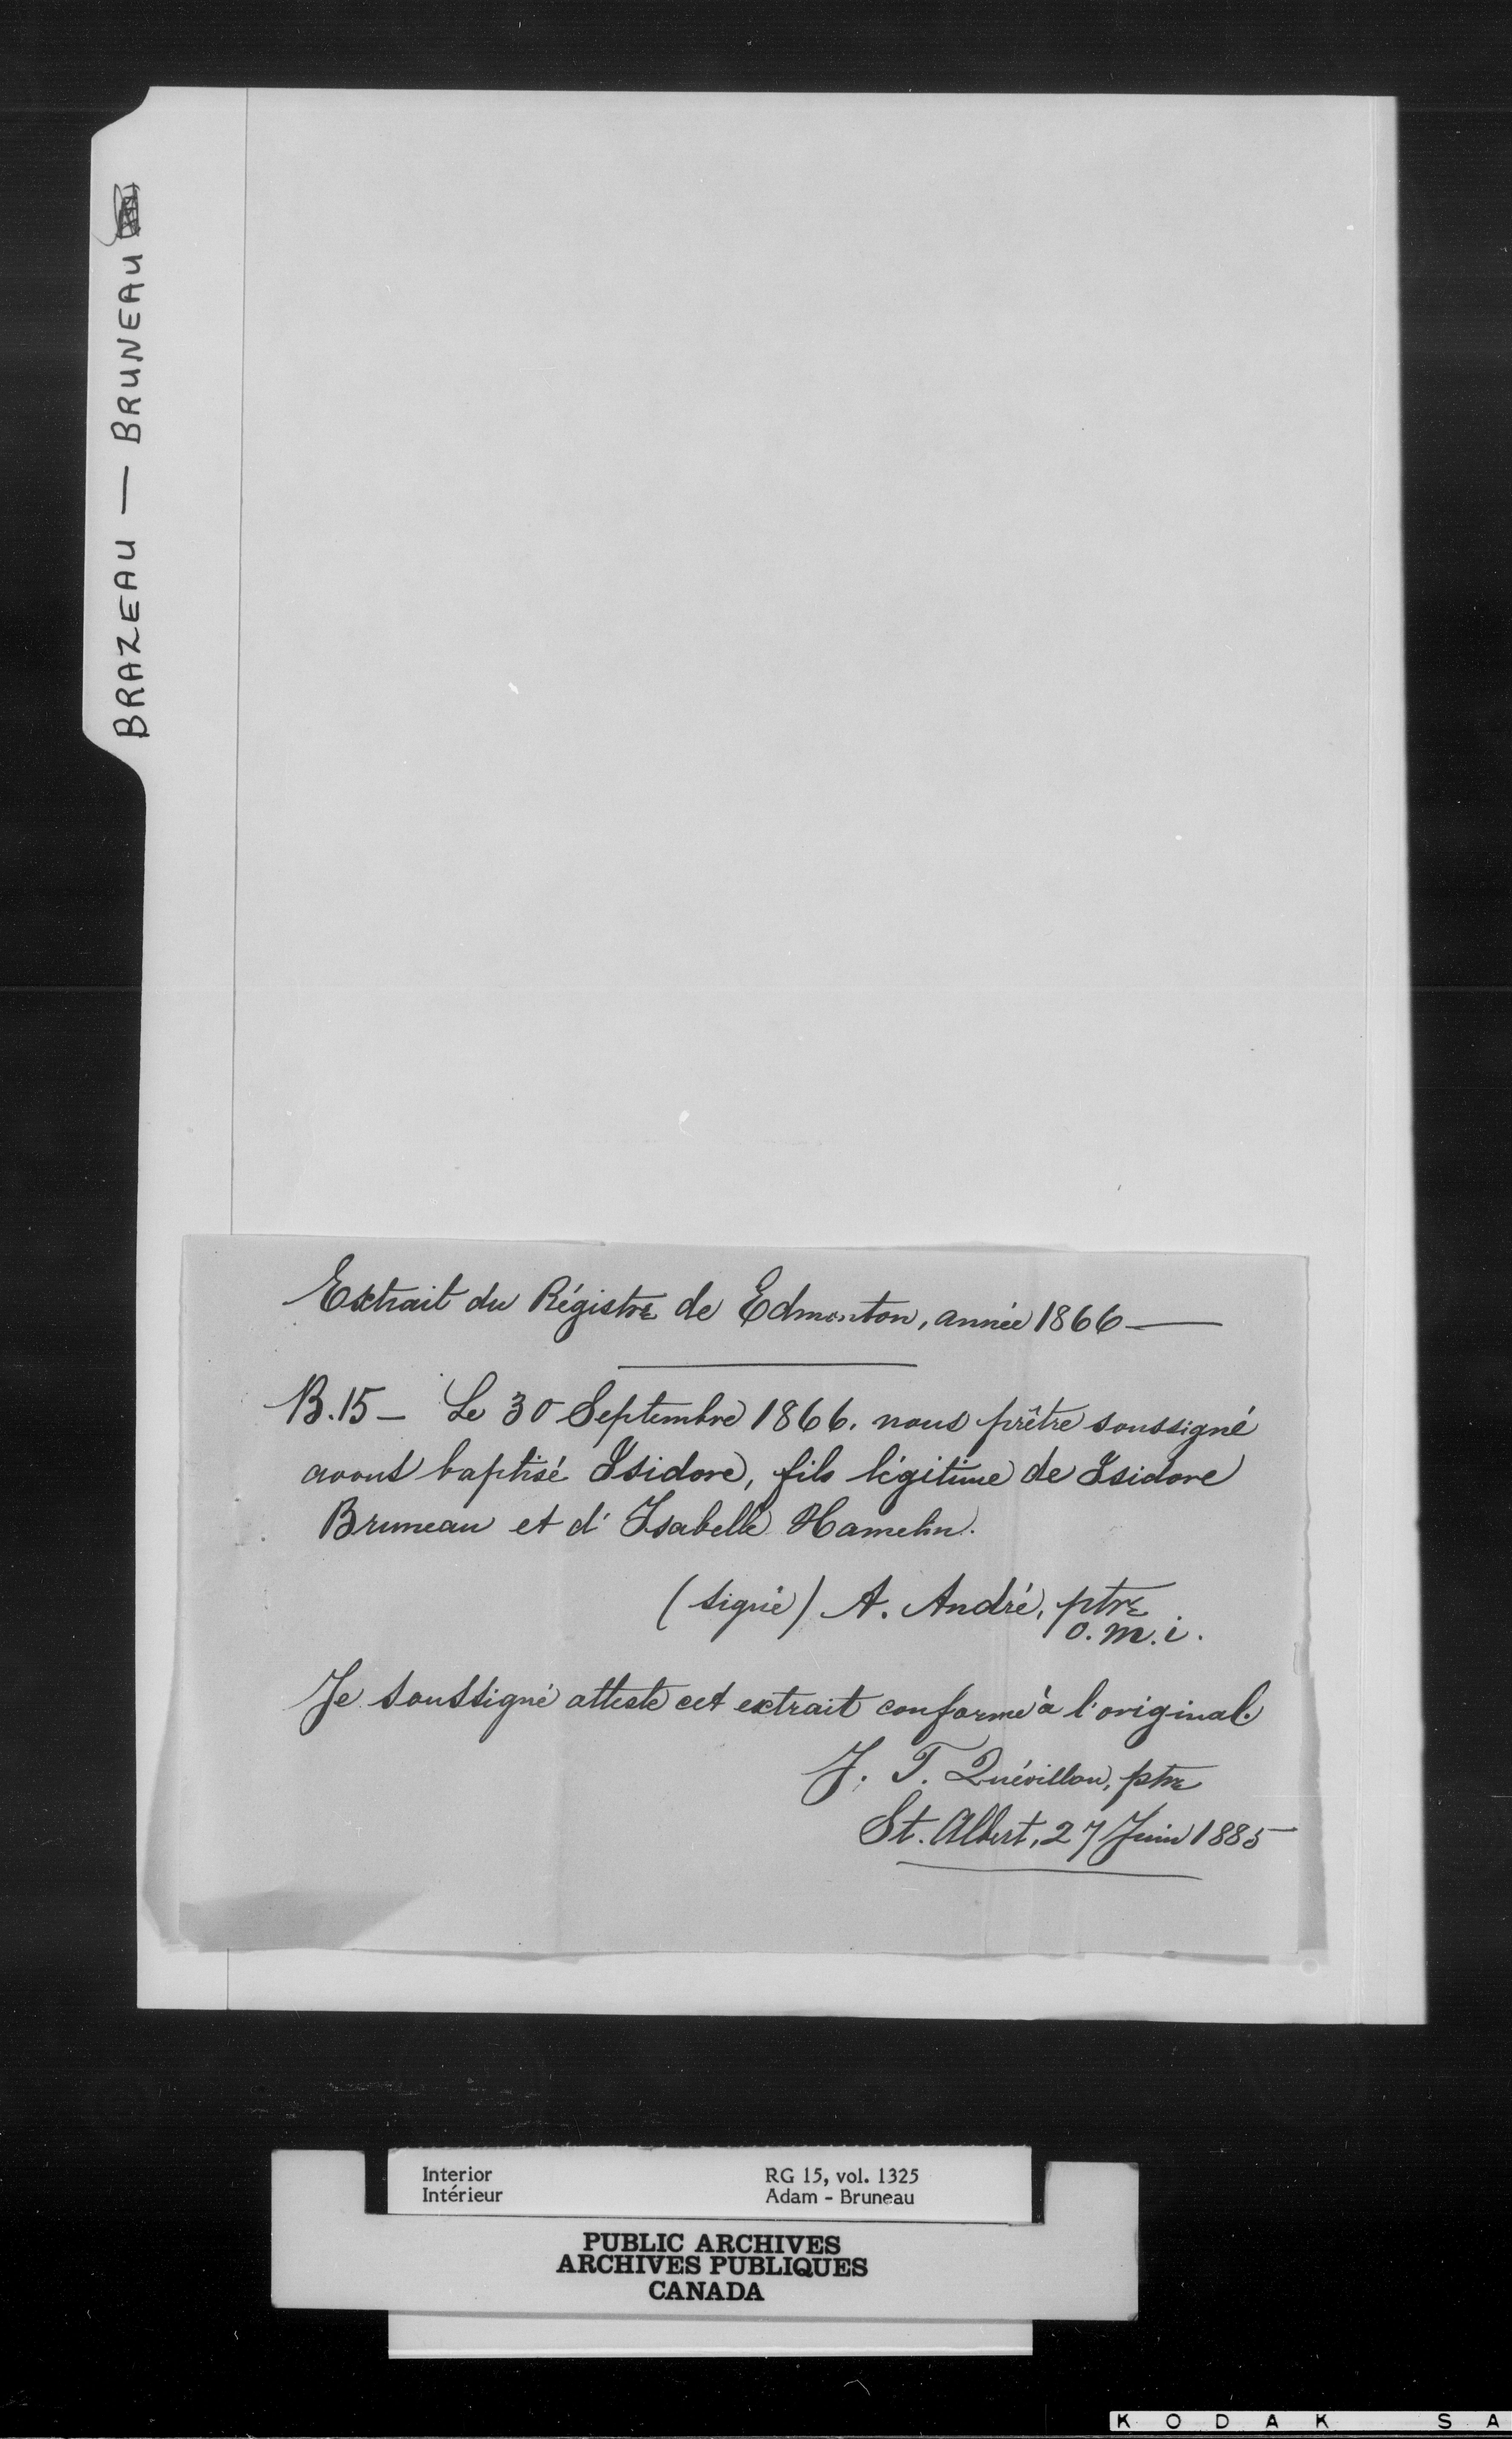 BRAZEAU — BRUNEAU
Extrait du Régistre de Edmonton, année 1866 —
B. 15 — Le 30 Septembre 1866. nous prêtre soussigné
avons baptisé Isidore, fils légitime de Isidore
Bruneau et d' Isabelle Hamelin.
(signé) A. André, ptre
o. m. i.
Je soussigné atteste cet extrait conforme à l'original.
J. T. Quévillon, ptre
St. Albert, 27 Juin 1885
Interior RG 15, vol. 1325
Intérieur Adam - Bruneau
PUBLIC ARCHIVES
ARCHIVES PUBLIQUES
CANADA
KODAK SA